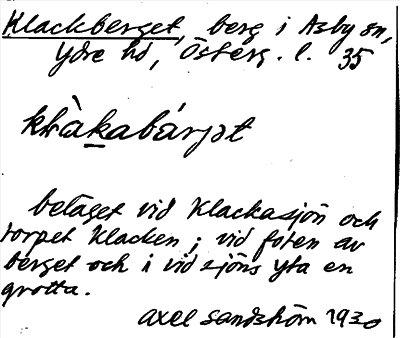 Klackberget, berg i Asby sn,
Ydre hd, Österg. l. 35
klàkabárjət
beläget vid Klackasjön och
torpet Klacken; vid foten av
berget och i vid sjöns yta en
grotta.
Axel Sandström 1930